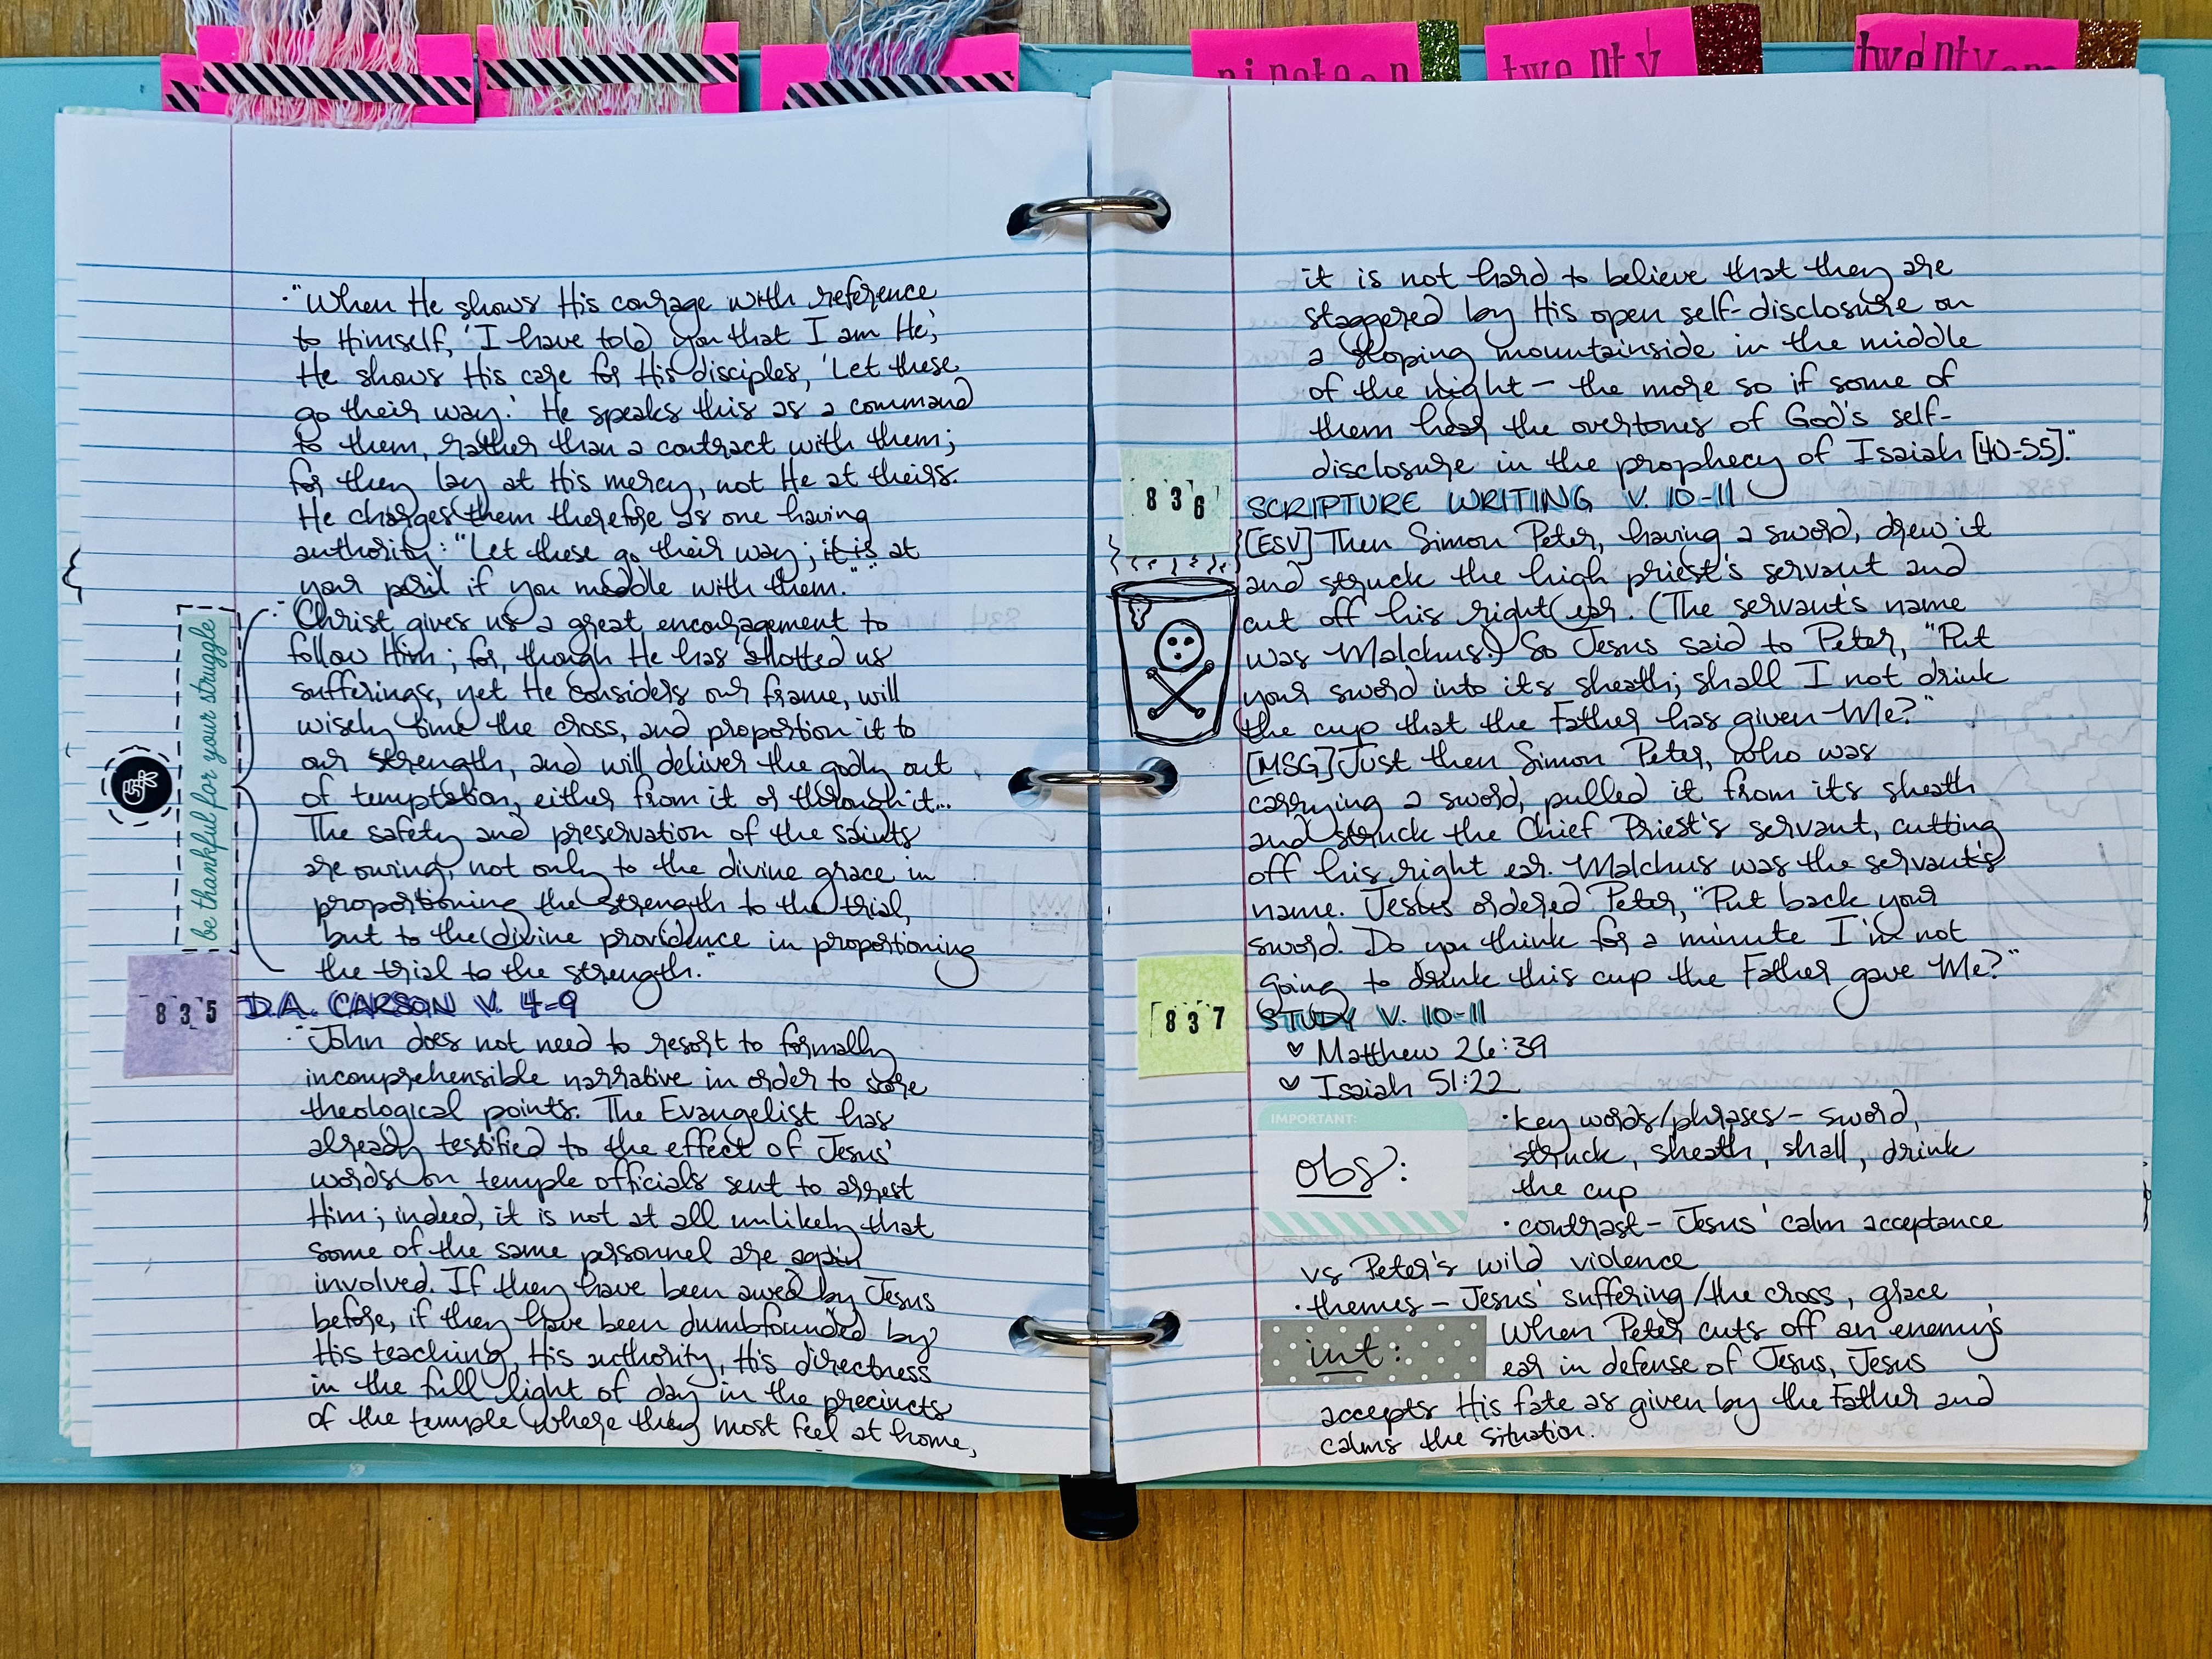 nineteen
twenty
twenty
·"When He shows His courage with reference
to Himself, 'I have told you that I am He,'
He shows His care for His disciples, 'Let these
go their way.' He speaks this as a command
to them, rather than a contract with them;
for they lay at His mercy, not He at theirs.
He charges them therefore as one having
authority: "Let these go their way; it is at
your peril if you meddle with them.""
·"Christ gives us a great encouragement to
follow Him; for, though He has allotted us
sufferings, yet He considers our frame, will
wisely time the cross, and proportion it to
our strength, and will deliver the godly out
of temptation, either from it or through it...
The safety and preservation of the saints
are owing, not only to the divine grace in
proportioning the strength to the trial,
but to the divine providence in proportioning
the trial to the strength."
be thankful for your struggle
835 D.A. CARSON V. 4-9
·"John does not need to resort to formally
incomprehensible narrative in order to score
theological points. The Evangelist has
already testified to the effect of Jesus'
words on temple officials sent to arrest
Him; indeed, it is not at all unlikely that
some of the same personnel are again
involved. If they have been awed by Jesus
before, if they have been dumbfounded by
His teaching, His authority, His directness
in the full light of day in the precincts
of the temple where they most feel at home,
it is not hard to believe that they are
staggered by His open self-disclosure on
a sloping mountainside in the middle
of the night – the more so if some of
them hear the overtones of God's self-
disclosure in the prophecy of Isaiah [40-55]."
836 SCRIPTURE WRITING V. 10-11
[ESV] Then Simon Peter, having a sword, drew it
and struck the high priest's servant and
cut off his right ear. (The servant's name
was Malchus.) So Jesus said to Peter, "Put
your sword into its sheath; shall I not drink
the cup that the Father has given Me?"
[MSG] Just then Simon Peter, who was
carrying a sword, pulled it from its sheath
and struck the Chief Priest's servant, cutting
off his right ear. Malchus was the servant's
name. Jesus ordered Peter, "Put back your
sword. Do you think for a minute I'm not
going to drink this cup the Father gave Me?"
837 STUDY V. 10-11
♡ Matthew 26:39
♡ Isaiah 51:22
IMPORTANT:
obs:
·key words/phrases – sword,
struck, sheath, shall, drink
the cup
·contrast – Jesus' calm acceptance
vs Peter's wild violence
·themes – Jesus' suffering/the cross, grace
int: When Peter cuts off an enemy's
ear in defense of Jesus, Jesus
accepts His fate as given by the Father and
calms the situation.